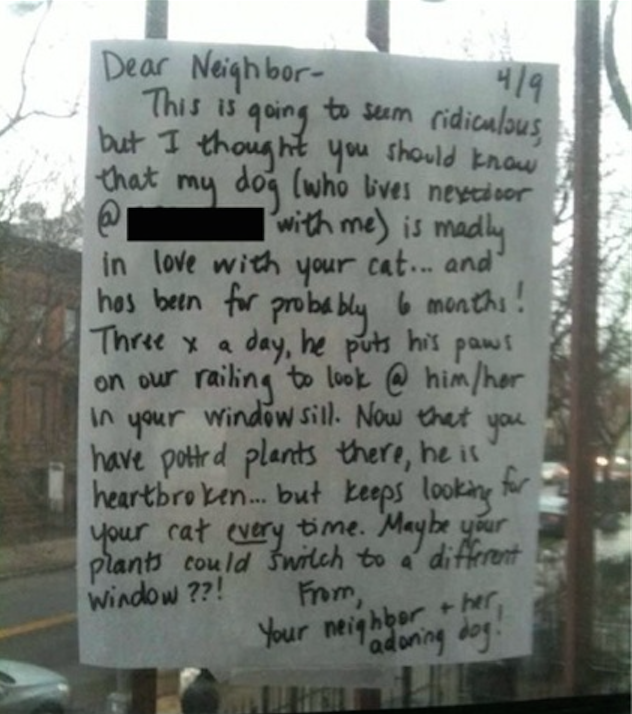 Dear Neighbor-
4/9
This is going to seem ridiculous,
but I thought you should know
that my dog (who lives nextdoor
@ with me) is madly
in love with your cat... and
has been for probably 6 months!
Three x a day, he puts his paws
on our railing to look @ him/her
in your windowsill. Now that you
have potted plants there, he is
heartbroken... but keeps looking for
your cat every time. Maybe your
plants could switch to a different
window??!
From,
Your neighbor + her
adoring dog!